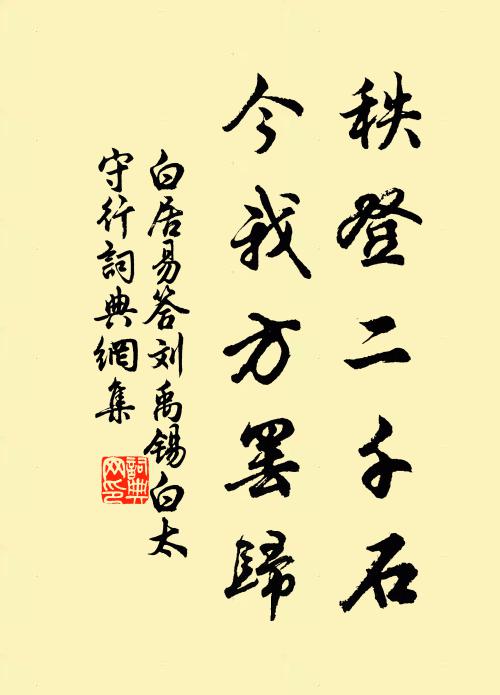 秩登二千石
今我方罷歸
白居易答刘禹锡白太
守行詞典網集
詞典
网印